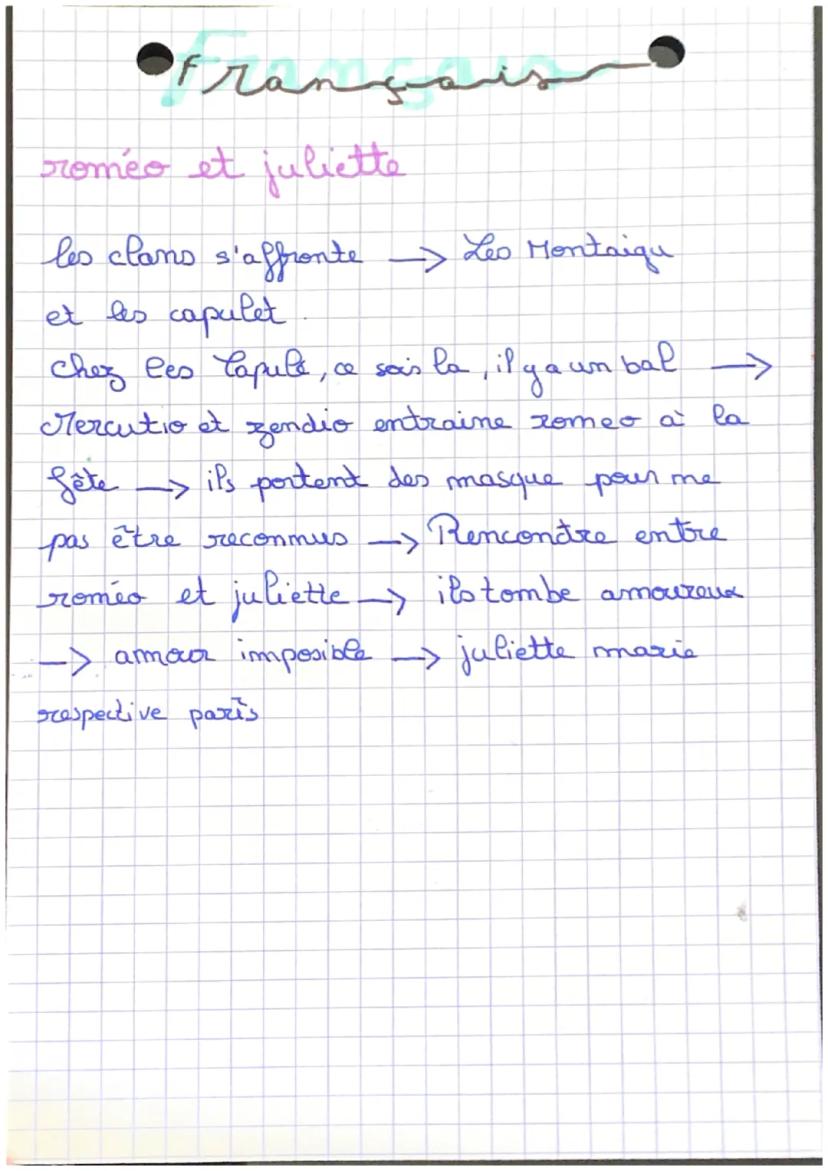 Français
roméo et juliette
les clans s'affronte → Les Montaigu
et les capulet.
chez les Capulet, ce sois la, il y a un bal →
Mercutio et zendio entraine romeo a la
fête → ils portent des masque pour ne
pas être reconnus → Rencondre entre
roméo et juliette → ils tombe amoureux
→ amour imposible → juliette marie
respective paris